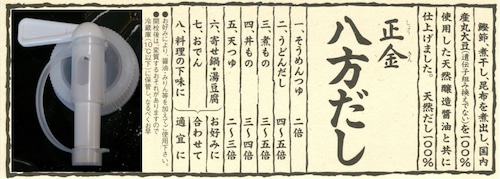 鰹節、煮干し、昆布を煮出し、国内
産丸大豆(遺伝子組み換えでない)を100%
使用した天然醸造醤油と共に
仕上げました。 天然だし100%
正金
しょう きん
八方だし
一、そうめんつゆ 二倍
二、うどんだし 四〜五倍
三、煮もの 三〜四倍
四、丼もの 二〜三倍
五、天つゆ 二〜三倍
六、寄せ鍋・湯豆腐 お好みに
七、おでん 合わせて
八、料理の下味に 適宜に
●お好みにより、醤油・みりん等を加えてご使用下さい。
●開栓後は、変質するおそれがありますので
冷蔵庫(10℃以下)に保管し、なるべくお早